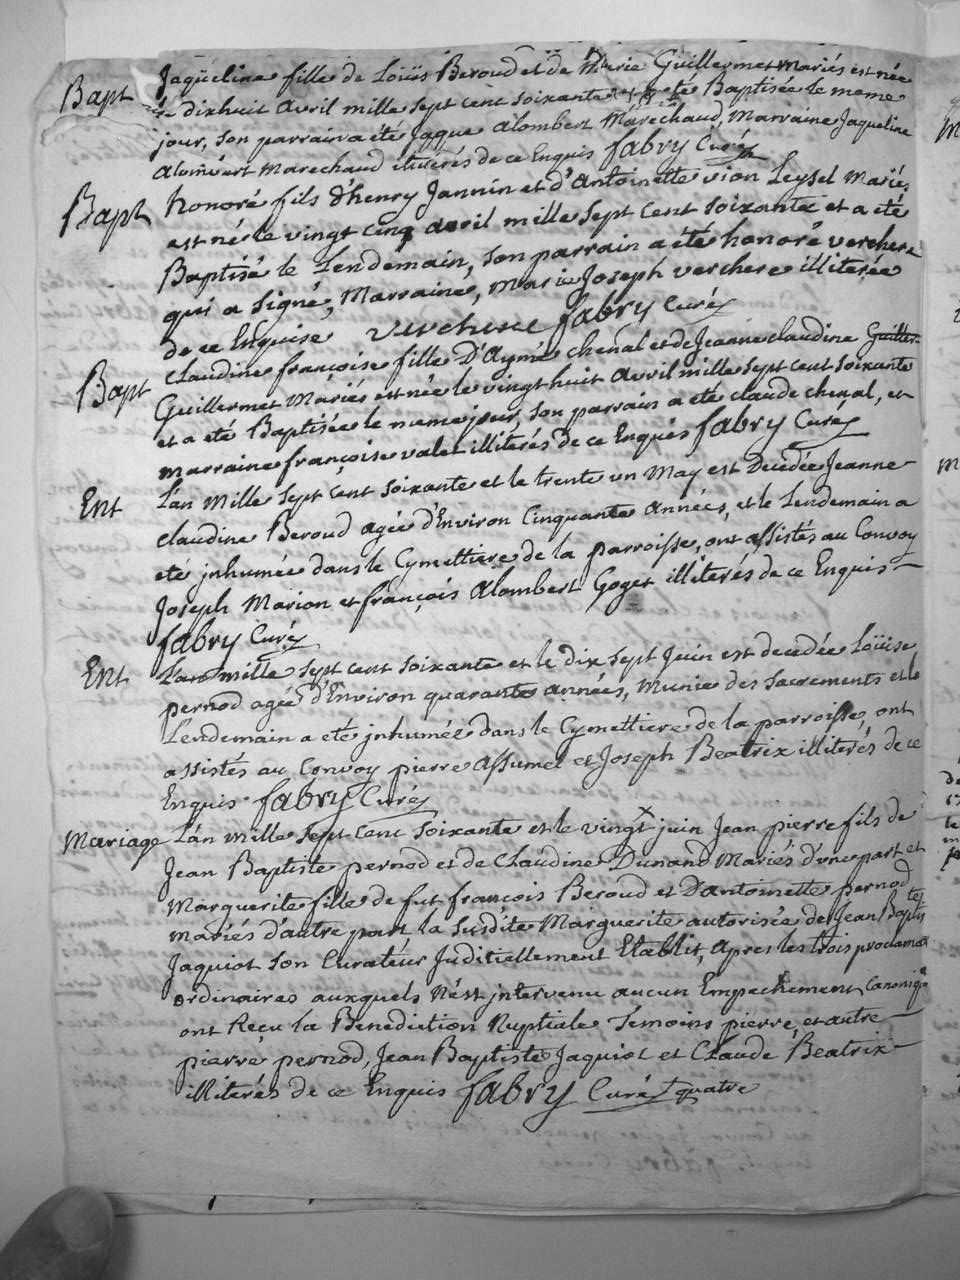 Bapt Jaqueline fille de Loüis Beroud et de Marie Guillermet Mariés est née
le dixhuit avril mille sept cent soixante et a eté Baptisée le meme
jour, son parrain a été Jaque alombert Maréchaud, Marraine Jaqueline
alombert Marechaud illiterés de ce Enquis fabry Curé
Bapt honoré fils d'henry Jannin et d'Antoinette vion Leysel Mariés
est né le vingt cinq avril mille sept cent soixante et a eté
Baptisé le Lendemain, son parrain a été honoré verchere
qui a signé, Marraine, Marie Joseph verchere illiterée
de ce Enquise verchere fabry Curé
Bapt Claudine françoise fille D'Aymé chenal et de Jeanne claudine Guiller-
Guillermet Mariés est née le vingt huit avril mille sept cent soixante
et a eté Baptisée le meme jour, son parrain a eté claude chenal, et
marraine françoise valet illiterés de ce Enqués fabry Curé
Ent L'an Mille sept cent soixante et le trente un May est Decedée Jeanne
claudine Beroud agée d'Environ Cinquante Années, et le Lendemain a
eté inhumée dans le Cymettiere de la parroisse, ont assistés au Convoy
Joseph Marion et françois alombert Goget illiterés de ce Enquis
fabry Curé
Ent L'an mille sept cent soixante et le dix sept Juin est decedée Loüise
pernod agée d'Environ quarante années, Munie des sacrements et le
Lendemain a eté inhumée dans le Cymettiere de la parroisse, ont
assistés au Convoy pierre Assumel et Joseph Beatrix illiterés de ce
Enquis fabry Curé
Mariage L'an mille sept cent soixante et le vingt juin Jean pierre fils de
Jean Baptiste pernod et de Claudine Dunand Mariés d'une part et
Marguerite fille de fut françois Beroud et D'antoinette pernod
mariés d'autre part la susdite Marguerite autorisée de Jean Baptiste
Jaquiot son Curateur Juditiellement Etablit, Apres les trois proclamaõ
ordinaires auxquels N'est intervenu aucun Empechement Canoniq
ont Reçu la Benediction Nuptiale Temoins pierre, et autre
pierre pernod, Jean Baptiste Jaquiot et Claude Beatrix
illiterés de ce Enquis fabry Curé quatre